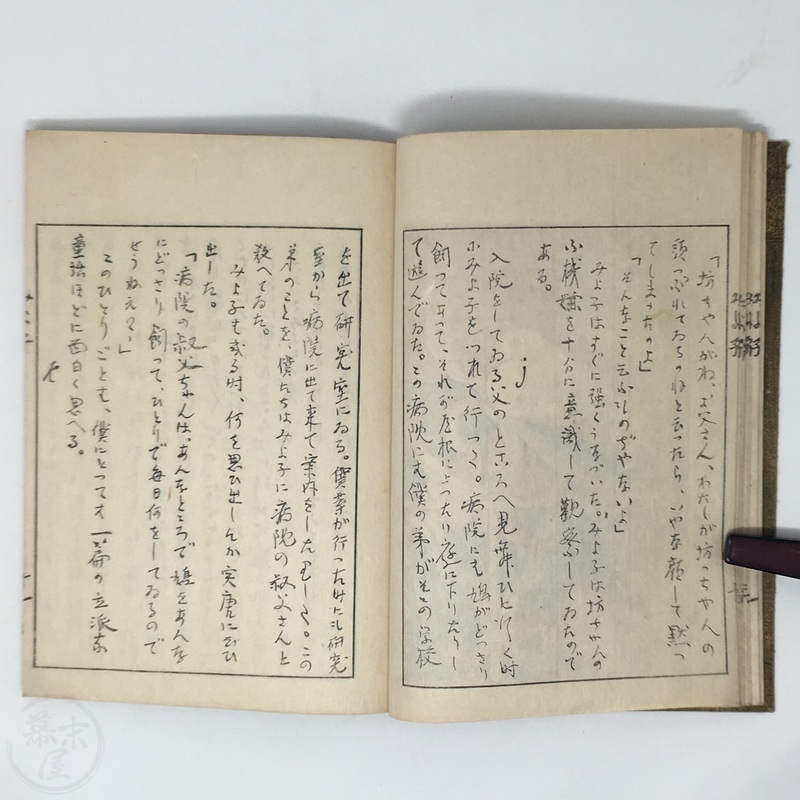 「坊ちやんがね、お父さん、わたしが坊つちやんの
頭つぶれてゐるのねと云つたら、いやな顔して黙つ
てしまつたのよ」
「そんなこと云ふものぢやないよ」
みよ子はすぐに強くうなづいた。みよ子は坊ちやんの
不機嫌を十分に意識して観察してゐたので
ある。
j
入院をしてゐる父のところへ見舞ひに行く時
みよ子をつれて行つた。病院にも鳩がどつさり
飼つてあつて、それが屋根に上つたり庭に下りたりし
て遊んでゐた。この病院にも僕の弟がその学校
を出て研究室にゐる。僕等が行つた時にも研究
室から病院に出て来て案内をしたりした。この
弟のことを、僕たちはみよ子に病院の叔父さんと
教へてゐた。
みよ子も或る時、何を思ひ出したか実唐に云ひ
出した。
「病院の叔父ちやんは、あんなところで鳩をあんな
にどつさり飼つて、ひとりで毎日何をしてゐるので
せうねえ？」
このひとりごとも、僕にとつては一篇の立派な
童話ほどに面白く思へる。
幕末
屋